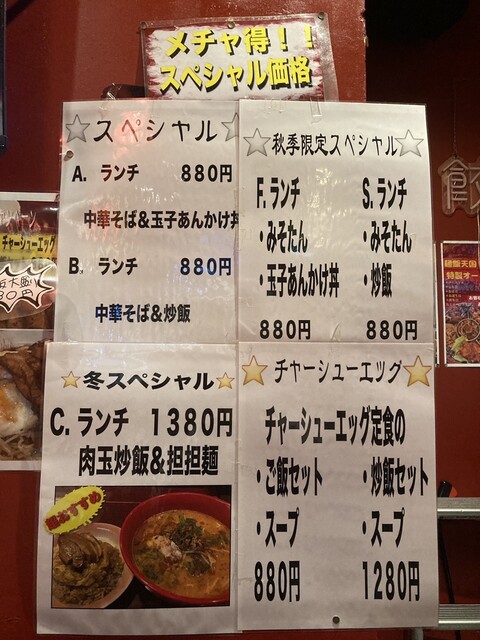 メチャ得！！
スペシャル価格
☆スペシャル☆
A. ランチ 880円
中華そば＆玉子あんかけ丼
B. ランチ 880円
中華そば＆炒飯
☆秋季限定スペシャル☆
F. ランチ
・みそたん
・玉子あんかけ丼
880円
S. ランチ
・みそたん
・炒飯
880円
☆冬スペシャル☆
C. ランチ 1380円
肉玉炒飯＆担担麺
☆チャーシューエッグ☆
チャーシューエッグ定食の
・ご飯セット
・スープ
880円
・炒飯セット
・スープ
1280円
チャーシューエッグ
餃